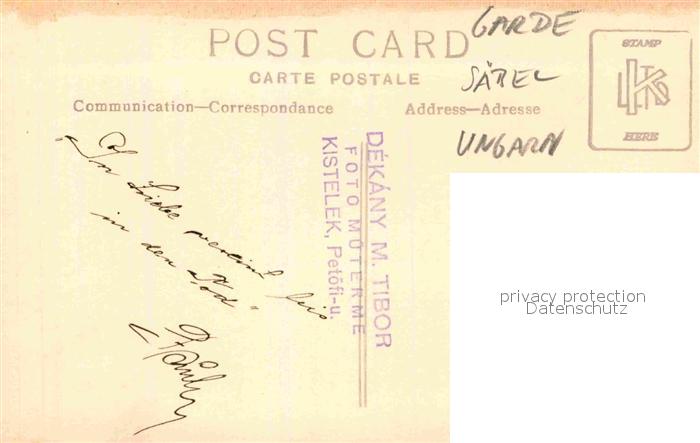 POST CARD
CARTE POSTALE
Communication—Correspondance
Address—Adresse
GARDE
SÄBEL
UNGARN
STAMP
HERE
DÉKÁNY M. TIBOR
FOTO MŰTERME
KISTELEK, Petőfi-u.
„In Liebe vereint bis
in den Tod"
privacy protection
Datenschutz